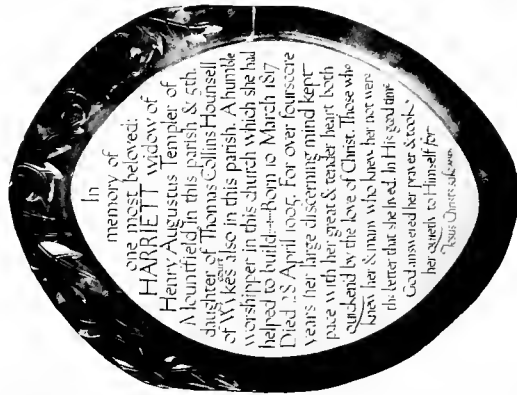 In
memory of
one most beloved:
HARRIETT widow of
Henry Augustus Templer of
Mountfield in this parish & 5th.
daughter of Thomas Collins Hounsell
of Wykes court also in this parish. A humble
worshipper in this church which she had
helped to build:—Born 10 March 1817
Died 28 April 1905. For over fourscore
years her large discerning mind kept
pace with her great & tender heart both
quickend by the love of Christ. Those who
knew her & many who knew her not were
the better that she lived. In His good time
God answered her prayer & took
her quietly to Himself for
Jesus Christ's sake